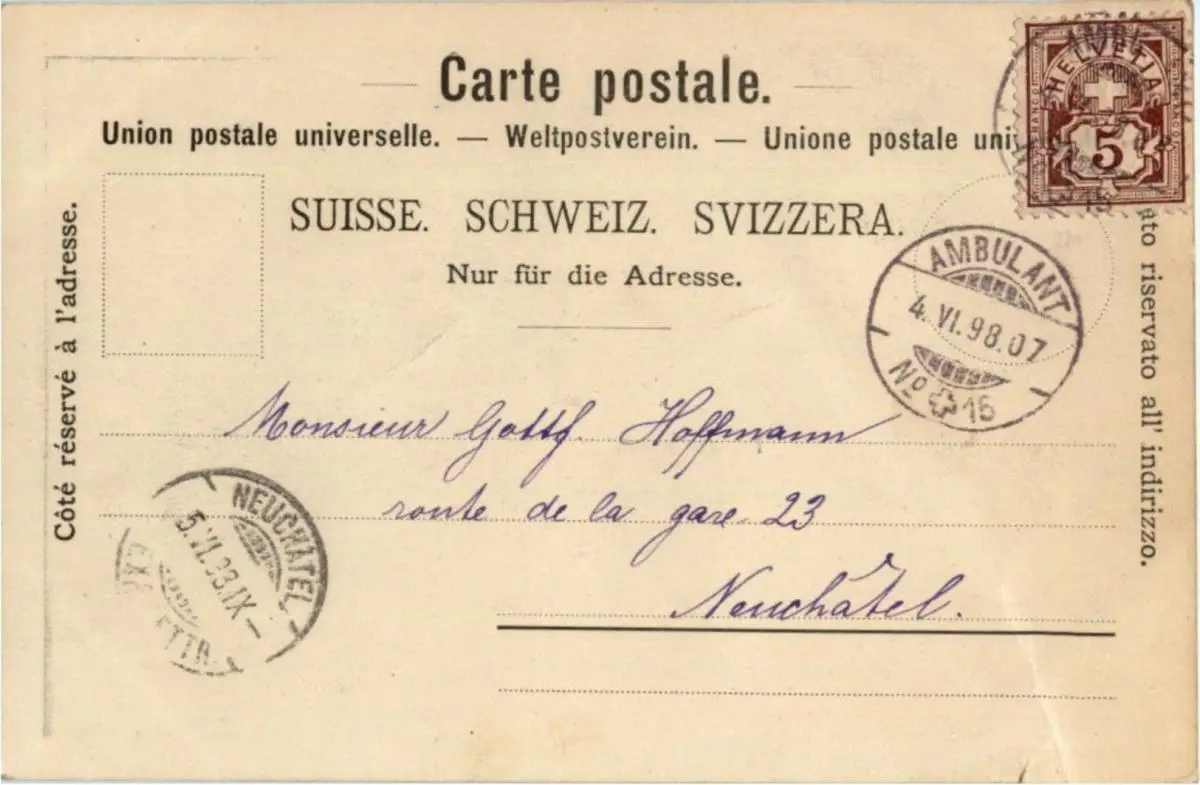 Carte postale.
Union postale universelle. — Weltpostverein. — Unione postale uni
SUISSE. SCHWEIZ. SVIZZERA.
Nur für die Adresse.
Côté réservé à l'adresse.
riservato all' indirizzo.
HELVETIA
5
AMBULANT
4. VI. 98.07
No 16
Monsieur Gottf. Hoffmann
route de la gare 23
Neuchâtel.
NEUCHATEL